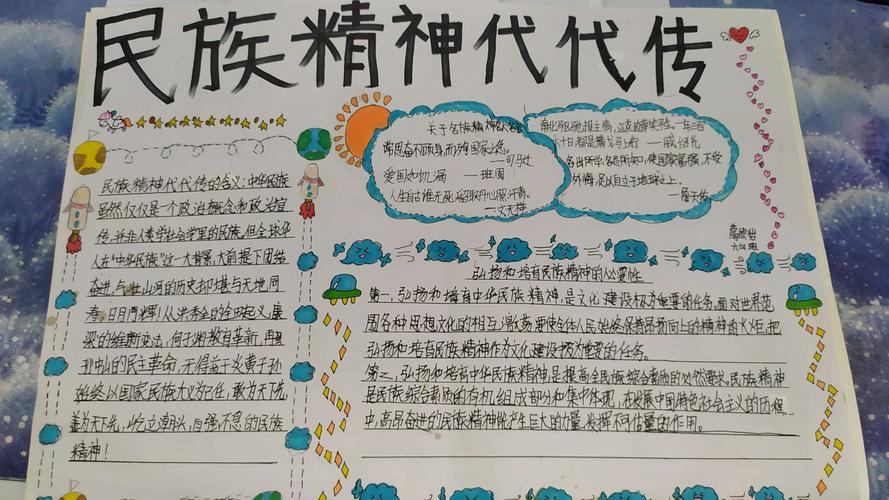 民族精神代代传
民族精神代代传的含义:中华民族
虽然仅仅是一个政治概念和政治宣
传,并非人类学社会学里的民族。但全球华
人在“中华民族”这一大背景,大前提下团结
奋进,与壮山河的历史却堪与天地同
寿,日月同辉!从洪秀全的金田起义,康
梁的维新变法,何于洲教育革新,再
孙中山的民主革命,无得益于炎黄子孙
始终以国家民族大义为己任,敢为天下先,
善为天下先,屹立潮头,自强不息的民族
精神!
关于名族精神的名言
常思奋不顾身,而殉国家之急。
——司马迁
爱国如饥渴 ——班固
人生自古谁无死,留取丹心照汗青。
——文天祥
南北驱驰报主情,江花边草笑平生。一年三百
六十日,都是横戈马上行 ——戚继光
各出所学,各尽所知,使国家富强,不受
外侮,足以自立于地球之上。
——詹天佑
弘扬和培育民族精神的必要性
第一,弘扬和培育中华民族精神,是文化建设极为重要的任务。面对世界范
围各种思想文化的相互激荡,要使全体人民始终保持昂扬向上的精神的火炬,把
弘扬和培育民族精神作为文化建设极为重要的任务。
第二,弘扬和培育中华民族精神是提高全民族综合素质的必然要求。民族精神
是民族综合素质的有机组成部分和集中体现,在发展中国特色社会主义的历程
中,高昂奋进的民族精神能产生巨大的力量,发挥不可估量的作用。